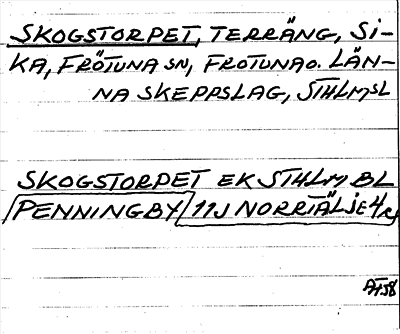 SKOGSTORPET, TERRÄNG, SI-
KA, FRÖTUNA SN, FRÖTUNA O. LÄN-
NA SKEPPSLAG, STHLMSL
SKOGSTORPET EK STHLM BL
PENNINGBY 11J NORRTÄLJE 4